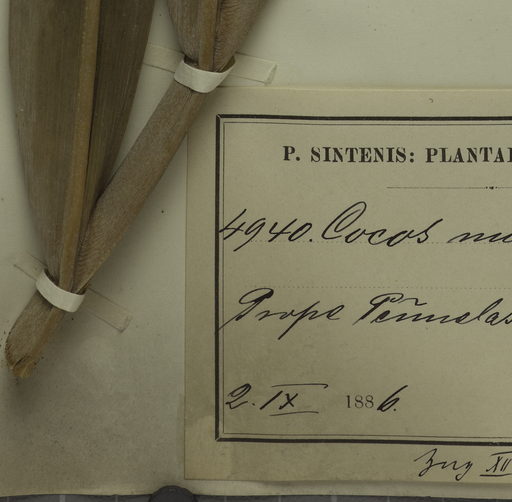 P. SINTENIS: PLANTAE
4940. Cocos nu
Prope Peñuelas
2. IX 1886.
XII